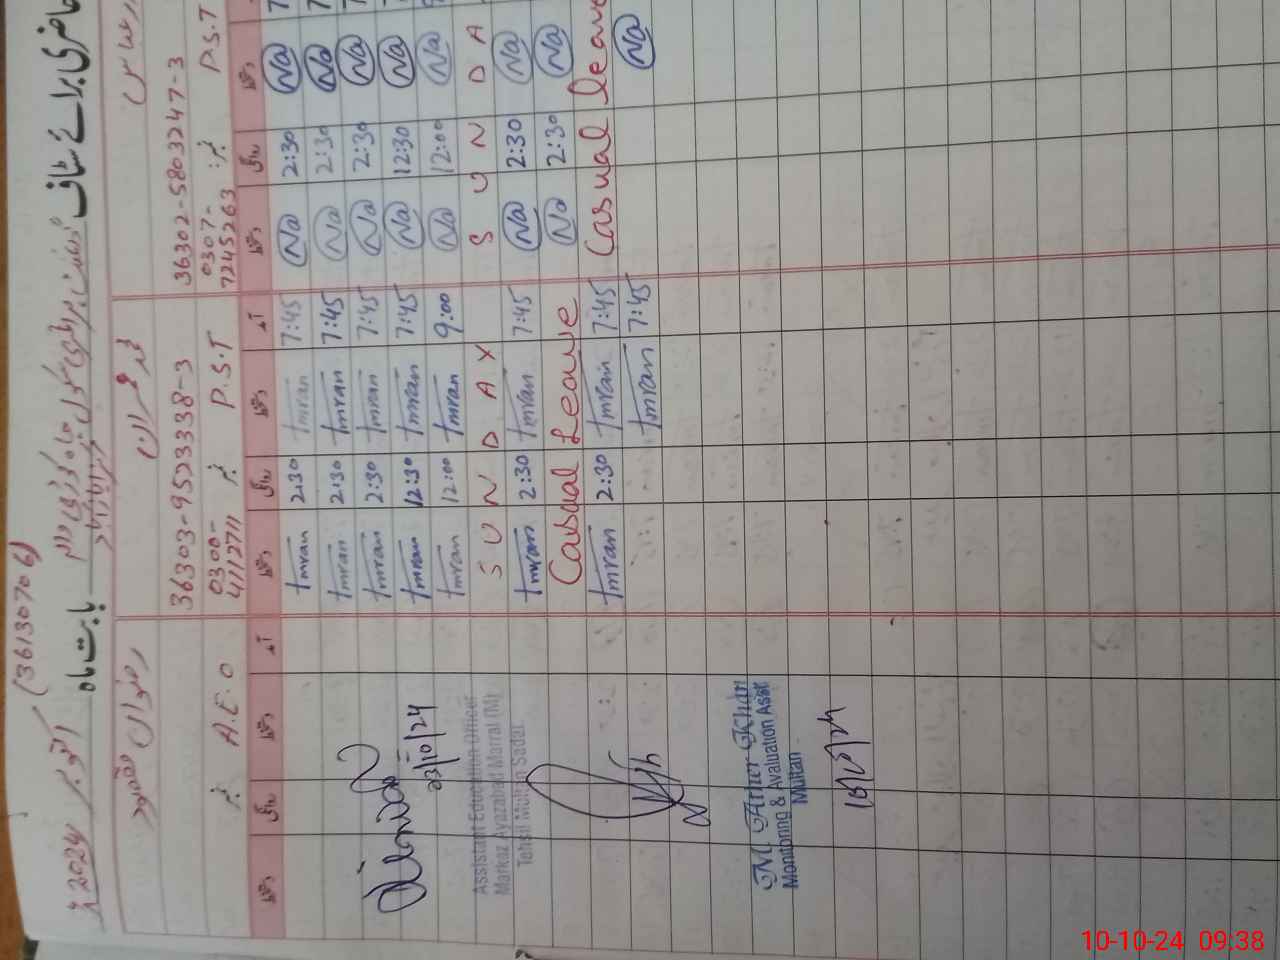 (36130706)
حاضری برائے سٹاف
بابت ماہ اکتوبر 2024ء
رضوان
محمد عمران
36303-9523338-3
36302-5803247-3
A.E.O
0300-4112711 P.S.T
0307-7245263 P.S.T
دستخط روانگی دستخط آمد دستخط روانگی دستخط آمد دستخط روانگی دستخط
Imran 2:30 Imran 7:45 Na 2:30 Na
Imran 2:30 Imran 7:45 Na 2:30 Na
Imran 2:30 Imran 7:45 Na 2:30 Na
Imran 12:30 Imran 7:45 Na 12:30 Na
03/10/24 Imran 12:00 Imran 9:00 Na 12:00 Na
S U N D A Y S U N D A
Assistant Education Officer
Markaz Ayazabad Marral (M)
Tehsil Multan Sadar
Imran 2:30 Imran 7:45 Na 2:30 Na
Casual Leave Na 2:30 Na
Imran 2:30 Imran 7:45 Casual leave
Imran 7:45 Na
M. Ather Khan
Monitoring & Evaluation Asst
Multan
10-10-24 09:38